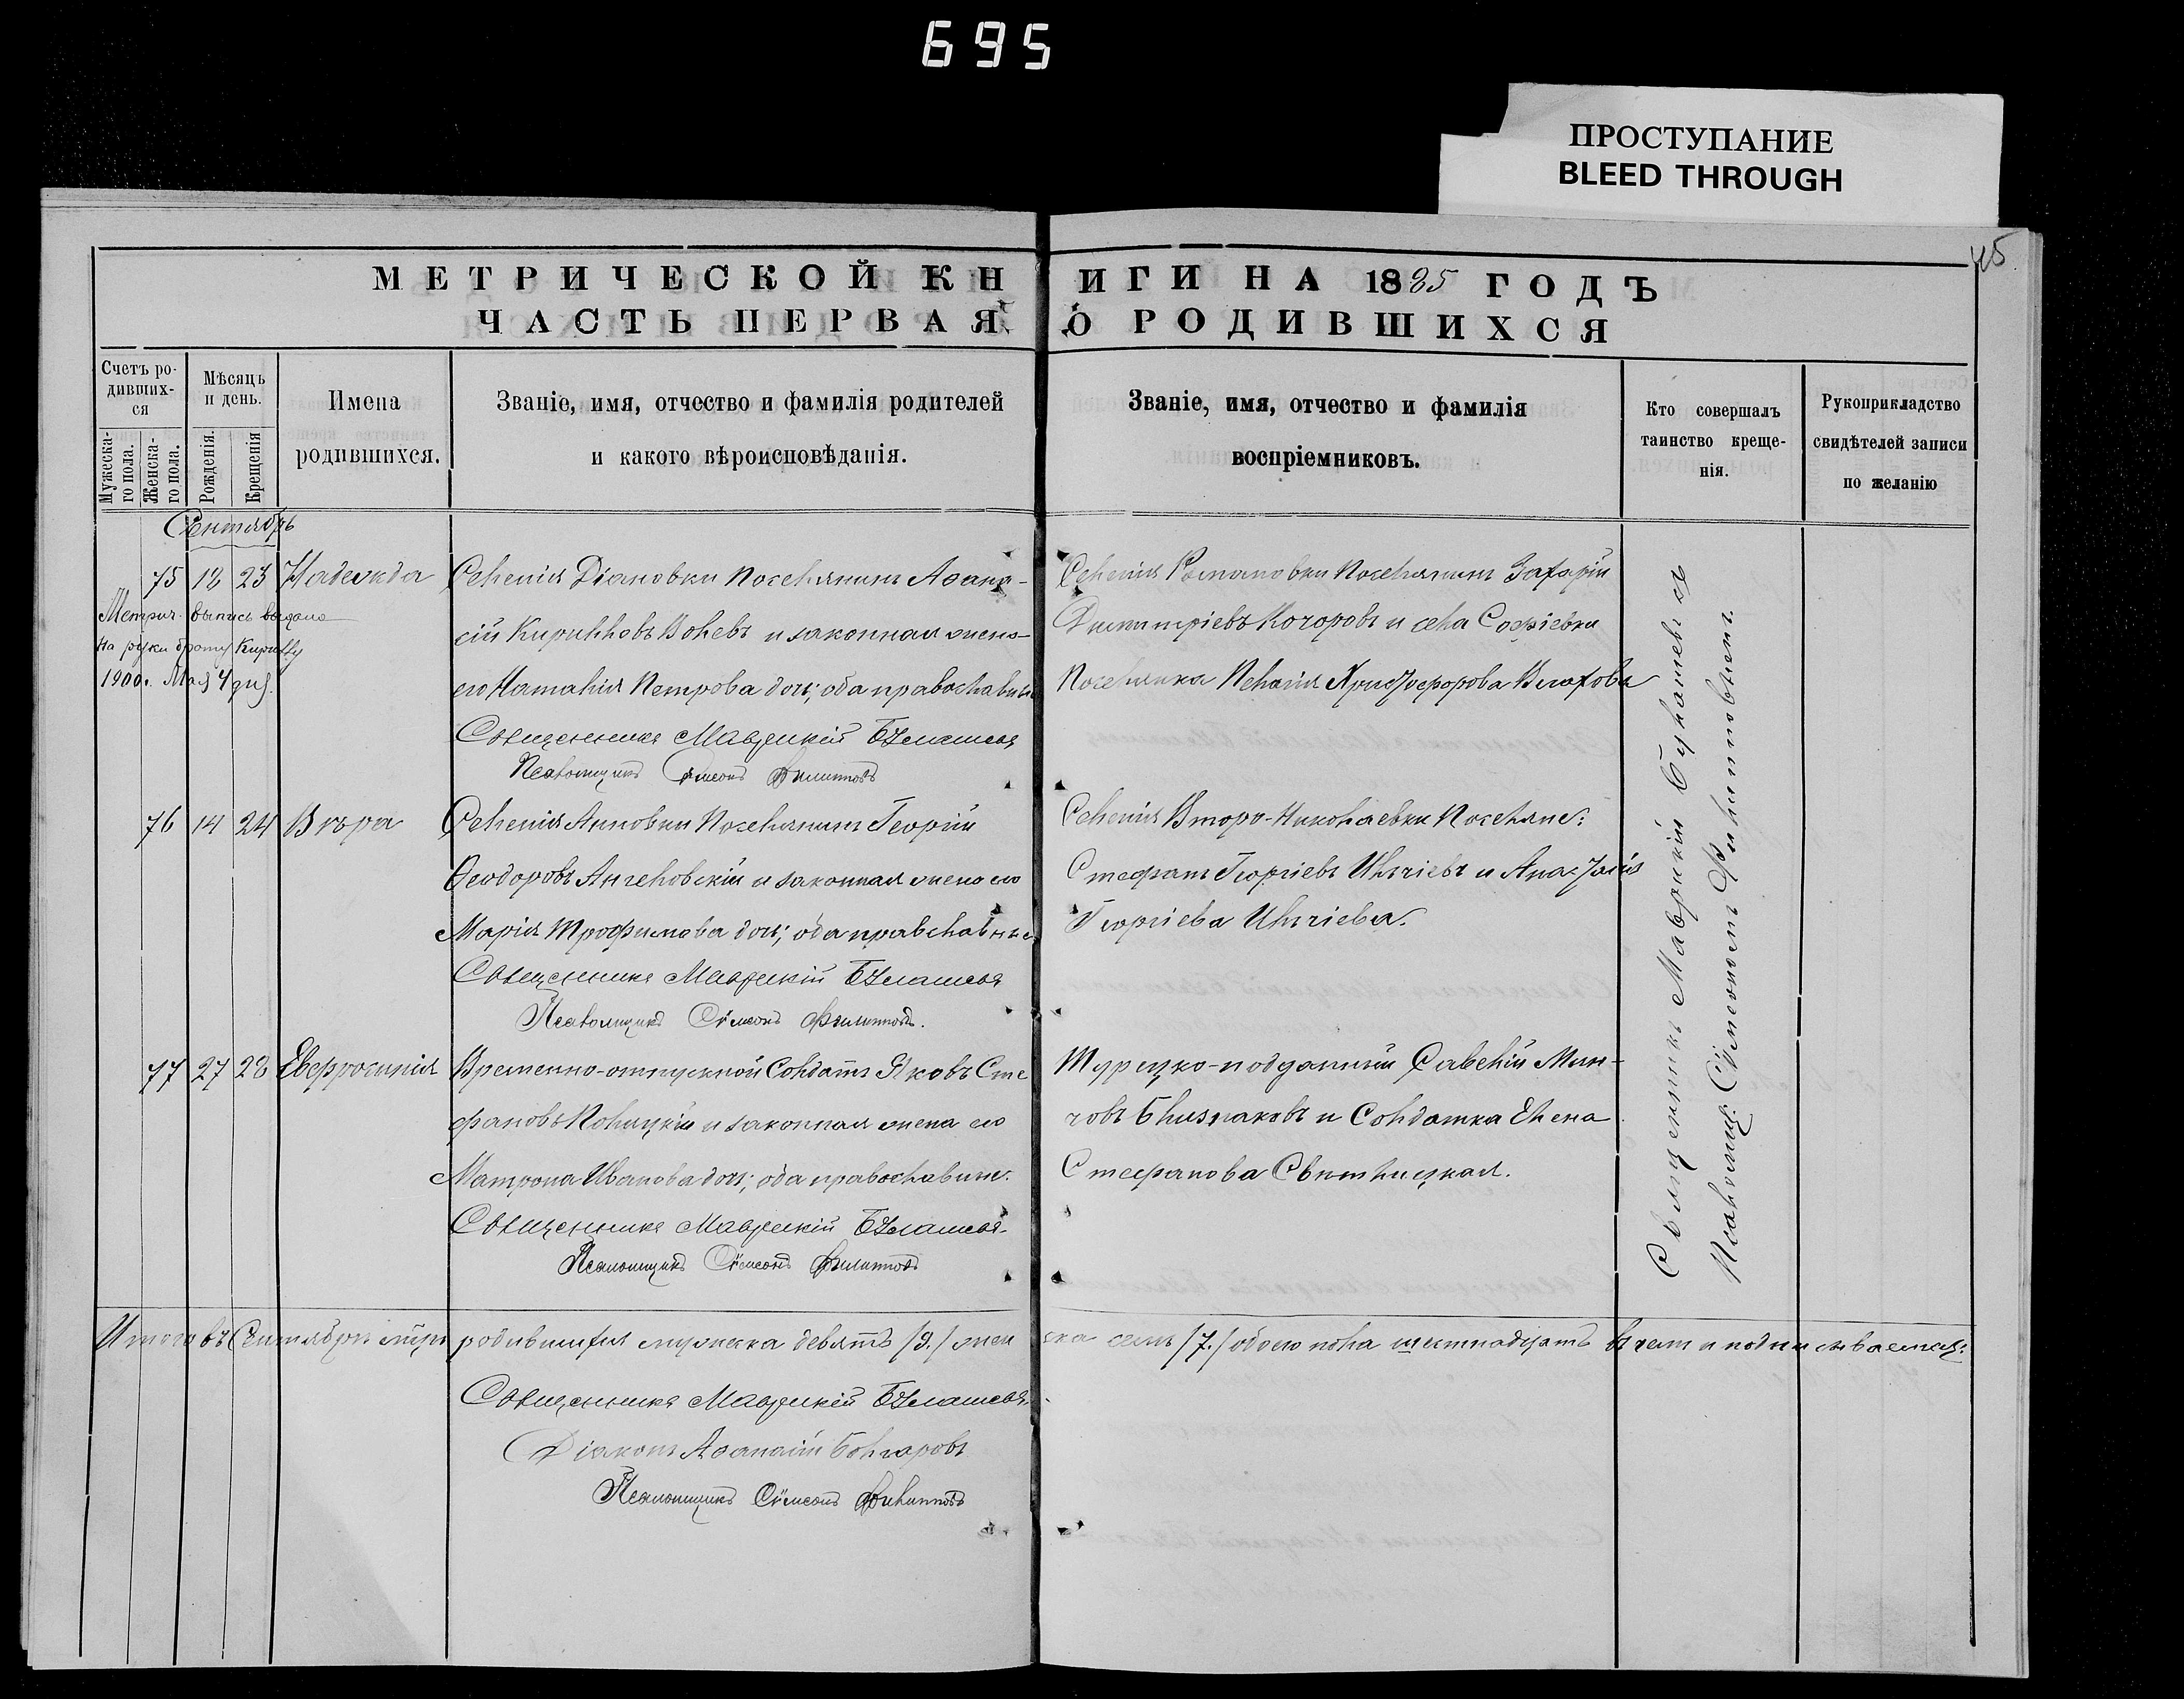 695
ПРОСТУПАНИЕ
BLEED THROUGH
45.
МЕТРИЧЕСКОЙ КНИГИ НА 1885 ГОДЪ
ЧАСТЬ ПЕРВАЯ, О РОДИВШИХСЯ
Счетъ ро-
дивших-
ся
Мужеска-
го пола.
Женска-
го пола.
Мѣсяць
и день.
Рожденія.
Крещенія
Имена
родившихся.
Званіе, имя, отчество и фамилія родителей
и какого вѣроисповѣданія.
Званіе, имя, отчество и фамилія
воспріемниковъ.
Кто совершалъ
таинство креще-
нія.
Рукоприкладство
свидѣтелей записи
по желанію
Сентябрь
75 12 23 Надежда
Метрич. выпись выдана
на руки брату Кириллу
1900г. Мая 4 дня.
Селенія Діановки Поселянинъ Аѳана-
сій Кирилловъ Волевъ и законная жена
его Наталія Петрова дочь; оба православные
Священникъ Маврикій
Псаломщикъ Сѵмеонъ Филипповъ
Селенія Романовки Поселянинъ Захарій
Димитріевъ Кочоровъ и села Софіевки
Поселянка Пелагія Христофорова Влахова
76 14 24 Вѣра
Селенія Анновки Поселянинъ Георгій
Ѳеодоровъ Ангеловскій и законная жена его
Марія Трофимова дочь; оба православные
Священникъ Маврикій
Псаломщикъ Сѵмеонъ Филипповъ.
Селенія Второ-Николаевки Поселяне:
Стефанъ Георгіевъ Ильчіевъ и Анастасія
Георгіева Ильчіева.
77 27 28 Евфросинія
Временно-отпускной Солдатъ Яковъ Сте
фановъ Колицкій и законная жена его
Матрона Иванова дочь; оба православные.
Священникъ Маврикій
Псаломщикъ Сѵмеонъ Филипповъ
Турецко-подданный Савелій Мин-
човъ Близнаковъ и Солдатка Елена
Стефанова Свѣтлицкая.
Священникъ Маврикій
Псаломщ. Сѵмеономъ Филипповымъ.
Итого въ Сентябрѣ м-цѣ родившихся мужеска девять /9./ жен
ска семь /7./ обоего пола шестнадцать въ чемъ и подписываемся:
Священникъ Маврикій
Діаконъ Аѳанасій Болгаровъ
Псаломщикъ Сѵмеонъ Филипповъ